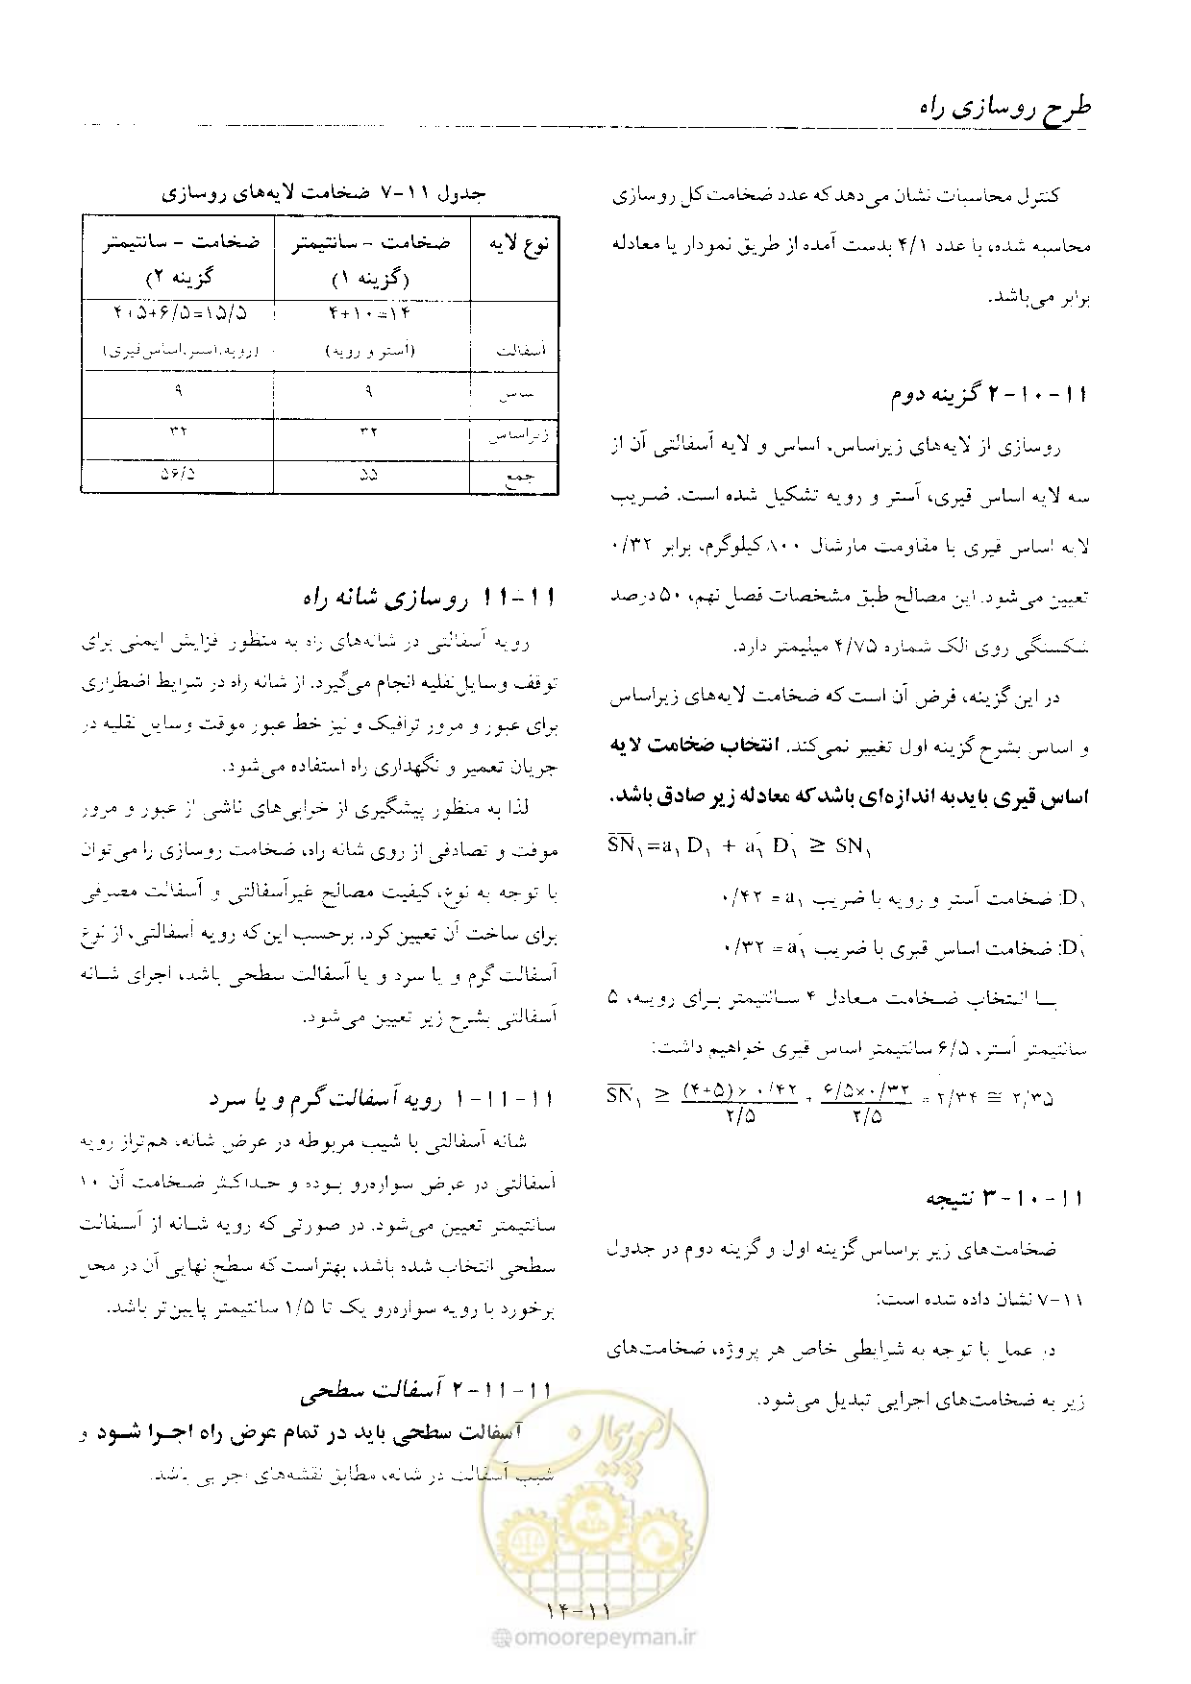 طرح روسازی راه
کنترل محاسبات نشان می‌دهد که عدد ضخامت کل روسازی
محاسبه شده، با عدد ۴/۱ بدست آمده از طریق نمودار یا معادله
برابر می‌باشد.
۱۱-۱۰-۲ گزینه دوم
روسازی از لایه‌های زیراساس، اساس و لایه آسفالتی آن از
سه لایه اساس قیری، آستر و رویه تشکیل شده است. ضریب
لایه اساس قیری با مقاومت مارشال ۸۰۰ کیلوگرم، برابر ۰/۳۲
تعیین می‌شود. این مصالح طبق مشخصات فصل نهم، ۵۰ درصد
شکستگی روی الک شماره ۴/۷۵ میلیمتر دارد.
در این گزینه، فرض آن است که ضخامت لایه‌های زیراساس
و اساس بشرح گزینه اول تغییر نمی‌کند. انتخاب ضخامت لایه
اساس قیری باید به اندازه‌ای باشد که معادله زیر صادق باشد.
S̅N̅₁=a₁ D₁ + a₁′ D₁′ ≥ SN₁
D₁: ضخامت آستر و رویه با ضریب a₁ = ۰/۴۲
D₁′: ضخامت اساس قیری با ضریب a₁′ = ۰/۳۲
با انتخاب ضخامت معادل ۴ سانتیمتر برای رویه، ۵
سانتیمتر آستر، ۶/۵ سانتیمتر اساس قیری خواهیم داشت:
S̅N̅₁ ≥ (۴+۵)×۰/۴۲ / ۲/۵ + ۶/۵×۰/۳۲ / ۲/۵ = ۲/۳۴ ≅ ۲/۳۵
۱۱-۱۰-۳ نتیجه
ضخامت‌های زیر براساس گزینه اول و گزینه دوم در جدول
۱۱-۷ نشان داده شده است:
در عمل با توجه به شرایطی خاص هر پروژه، ضخامت‌های
زیر به ضخامت‌های اجرایی تبدیل می‌شود.
جدول ۱۱-۷ ضخامت لایه‌های روسازی
نوع لایه ضخامت - سانتیمتر ضخامت - سانتیمتر
(گزینه ۱) گزینه ۲)
۴+۱۰=۱۴ ۴+۵+۶/۵=۱۵/۵
آسفالت (آستر و رویه) (رویه، آستر، اساس قیری)
اساس ۹ ۹
زیراساس ۳۲ ۳۲
جمع ۵۵ ۵۶/۵
۱۱-۱۱ روسازی شانه راه
رویه آسفالتی در شانه‌های راه به منظور فزایش ایمنی برای
توقف وسایل نقلیه انجام می‌گیرد. از شانه راه در شرایط اضطراری
برای عبور و مرور ترافیک و نیز خط عبور موقت وسایل نقلیه در
جریان تعمیر و نگهداری راه استفاده می‌شود.
لذا به منظور پیشگیری از خرابی‌های ناشی از عبور و مرور
موقت و تصادفی از روی شانه راه، ضخامت روسازی را می‌توان
با توجه به نوع، کیفیت مصالح غیرآسفالتی و آسفالت مصرفی
برای ساخت آن تعیین کرد. برحسب این که رویه آسفالتی، از نوع
آسفالت گرم و یا سرد و یا آسفالت سطحی باشد، اجرای شانه
آسفالتی بشرح زیر تعیین می‌شود.
۱۱-۱۱-۱ رویه آسفالت گرم و یا سرد
شانه آسفالتی با شیب مربوطه در عرض شانه، هم‌تراز رویه
آسفالتی در عرض سواره‌رو بوده و حداکثر ضخامت آن ۱۰
سانتیمتر تعیین می‌شود. در صورتی که رویه شانه از آسفالت
سطحی انتخاب شده باشد، بهتراست که سطح نهایی آن در محل
برخورد با رویه سواره‌رو یک تا ۱/۵ سانتیمتر پایین‌تر باشد.
۱۱-۱۱-۲ آسفالت سطحی
آسفالت سطحی باید در تمام عرض راه اجرا شود و
شیب آسفالت در شانه، مطابق نقشه‌های اجرایی باشد.
امور پیمان
۱۴-۱۱
@omoorepeyman.ir